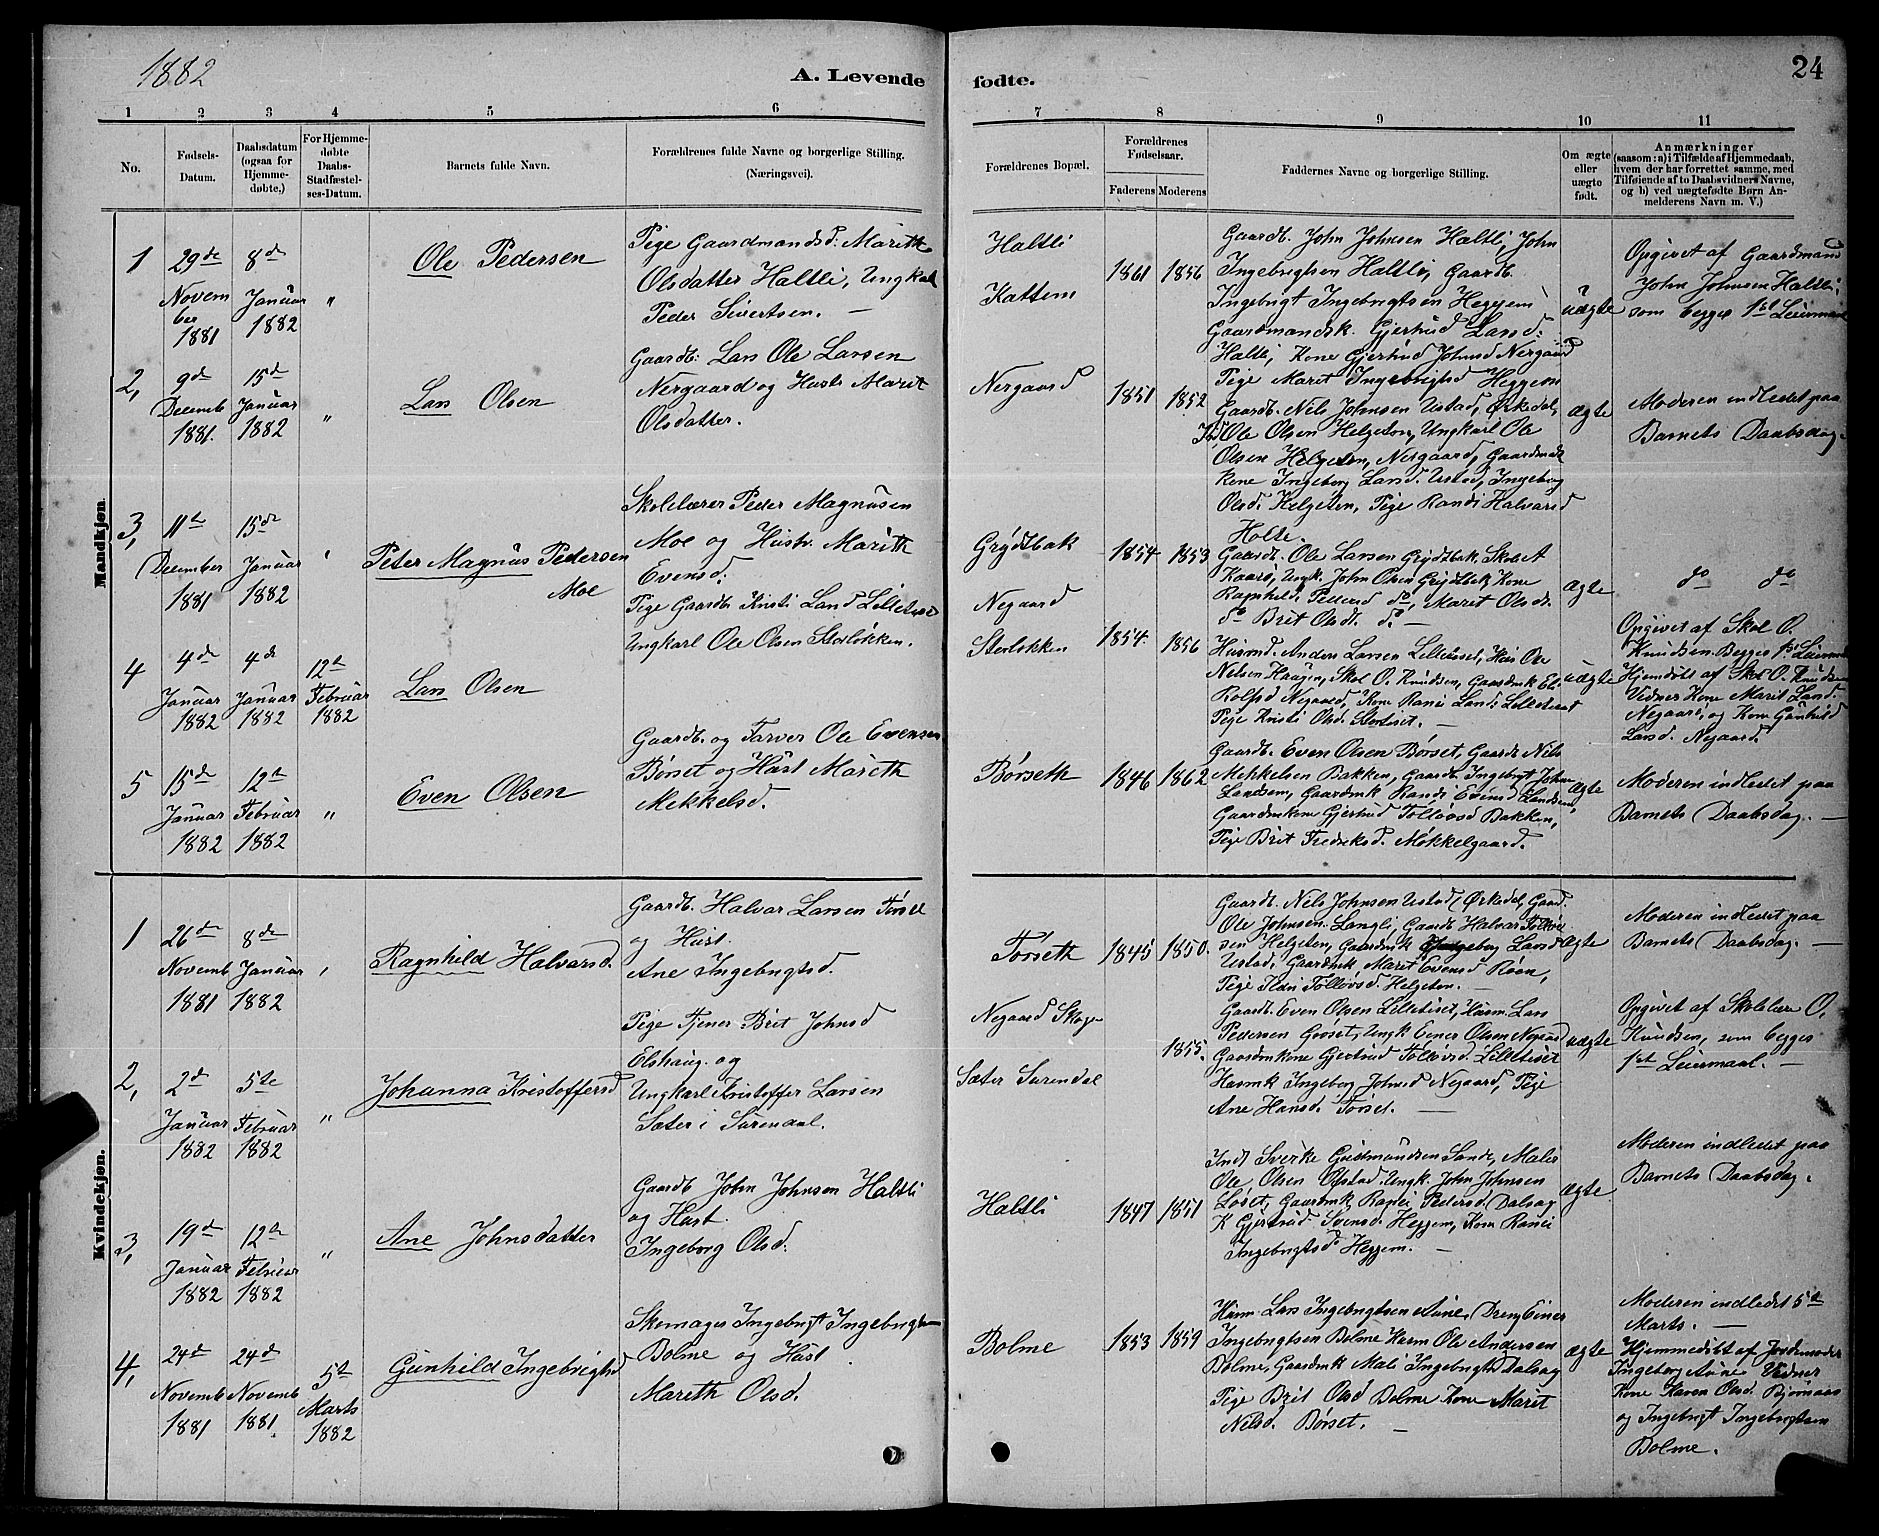 1882
A. Levende
fødte.
24
1
2
3
4
5
6
7
8
9
10
11
No.
Fødsels-
Datum.
Daabsdatum
(ogsaa for
Hjemme-
døbte.)
For Hjemme-
døbte
Daabs-
Stadfæstel-
ses-Datum.
Barnets fulde Navn.
Forældrenes fulde Navne og borgerlige Stilling.
(Næringsvei).
Forældrenes Bopæl.
Forældrenes
Fødselsaar.
Faderens
Moderens
Faddernes Navne og borgerlige Stilling.
Om ægte
eller
uægte
født.
Anmærkninger
(saasom: a) i Tilfælde af Hjemmedaab,
hvem der har forrettet samme, med
Tilføiende af to Daabsvidners Navne,
og b) ved uægtefødte Børn An-
melderens Navn m. V.)
Mandkjøn
1
29de
Novem
ber
1881
8de
Januar
1882
"
Ole Pedersen
Pige Gaardmandsd: Marith
Olsdatter Haltli, Ungkal
Peder Sivertsen. —
Haltli
Kattem
1861
1856
Gaardb. John Johnsen Haltli, John
Ingebrigtsen Haltli, Gaardb.
Ingebrigt Ingebrigtsen Heggem
Gaardmandsk. Gjertrud Larsd.
Haltli, Kone Gjertrud Johnsd Nergaard
Pige Maret Ingebrigtsd Heggem
uægte
Opgivet af Gaardmand
John Johnsen Haltli,
som begges 1st Leiermaal
2,
9de
Decemb
1881.
15de
Januar
1882
"
Lars Olsen
Gaardb: Lars Ole Larsen
Nergaard og Hustr Marit
Olsdatter.
Nergaard
1851
1852
Gaardb. Nils Johnsen Ustad, Ørkedal,
Ole Olsen Helgeton, Ungkarl Ole
Olsen Helgeton, Nergaard, Gaardmds
Kone Ingeborg Larsd. Ustad, Ingeborg
Olsd. Helgeton, Pige Randi Halvarsd
Holte.
ægte
Moderen indledet paa
Barnets Daabsdag.
3,
11te
December
1881
15de
Januar
1882
Peter Magnus Pedersen
Moe
Skolelærer Peder Magnusen
Moe og Hustr. Marith
Evensd.
Grydtbak
1854
1853
Gaardb. Ole Larsen Grydtbak, Skol A
Kaarø, Ungk. John Olsen Grydtbak, Kone
Ragnhild Pedersd do, Maret Olsdt.
do Brit Olsdt. do —
ægte
do do
4
4de
Januar
1882
4de
Januar
1882
12te
Februar
1882
Lars Olsen
Pige Gaardb. Kristi Larsd Lilletiset
Ungkarl Ole Olsen Storløkken.
Negaard
Storløkken
1854
1856
Husmd. Anders Larsen Lilletiset, Hus Ole
Nelsen Haagen, Skol O. Knudsen, Gaardmk Eli
Rolfsd Negaard, Kone Ranei Larsd. Lilletiset
Pige Kristi Olsd. Storliset. —
uægte
Opgivet af Skol O.
Knudsen. Begges 1ste Leiermaal
Hjemdøbt af Skol O. Knudsen
Vidner Kone Marit Larsd.
Negaard, og Kone Gunhild
Larsd. Negaard.
5
15de
Januar
1882
12te
Februar
1882
"
Even Olsen
Gaardb. og Farver Ole Evensen
Børset og Hust Mareth
Mekkelsd.
Børseth
1846
1862
Gaardb. Even Olsen Børset, Gaardb Nils
Mekkelsen Bakken, Gaardb Ingebrigt Johns
Landsem, Gaardmk Randi Evensd Landsem,
Gaardmkone Gjertrud Tollovsd Bakken,
Pige Brit Fredriksd. Mokkelgaard.
ægte
Moderen indledet paa
Barnets Daabsdag. —
Kvindekjøn.
1
26de
Novemb
1881
8de
Januar
1882
Ragnhild Halvarsd.
Gaardb. Halvar Larsen Torset
og Hust.
Ane Ingebrigtsd.
Torseth
1845
1850.
Gaardb. Nils Johnsen Ustad, Ørkedal, Gaard.
Ole Johnsen Langli, Gaardb Halvar Tollov
sen Helgeton, Gaardmk Ingeborg Larsd
Ustad, Gaardmk Maret Evensd Røen,
Pige Ildri Tollovsd. Helgeton. —
ægte
Moderen indledet paa
Barnets Daabsdag. —
2,
2de
Januar
1882
5te
Februar
1882
"
Johanna Kristoffersd
Pige Tjener Brit Johnsd
Elshaug. og
Ungkarl Kristoffer Larsen
Sæter i Surendal.
Negaard Skoge
Sæter Surendal
1855.
Gaardb. Even Olsen Lilletiset, Husm. Lars
Pedersen Grøset, Ungk Einer Olsen Negaard
Gaardmkone Gjertrud Tollovsd. Lilletiset
Husmk Ingeborg Johnsd Negaard, Pige
Ane Hansd. Torset. —
uægte
Opgivet af Skolelær O.
Knudsen, som begges
1st Leiermaal. —
3,
19de
Januar
1882
12te
Februar
1882
"
Ane Johnsdatter
Gaardb John Johnsen Haltli
og Hust.
Ingeborg Olsd:
Haltli
1847
1851
Indt Sverke Gudmundsen Sande, Maler
Ole Olsen Opstad, Ungk. John Johnsen
Løset, Gaardmk Ranei Pedersd Dalsag
K Gjertrud Svensd. Heggem, Kone Ranei
Ingebrigtsd Heggem. —
ægte
Moderen indledet paa
Barnets Daabsdag.
4,
24de
Novemb
1881
24de
Novemb
1881.
5te
Marts
1882
Gunhild Ingebrigtsd
Skomager Ingebrigt Ingebrigts
Bolme og Hust
Mareth Olsd.
Bolme
1853
1859
Husm Lars Ingebrigtsen Aune, Dreng Einer
Ingebrigtsen Bolme Husm Ole Andersen
Bolme, Gaardmk Mali Ingebrigtsd Dalsag
Pige Brit Olsd Bolme Kone Marit
Nelsd. Børset. —
ægte
Moderen indledet 5te
Marts. —
Hjemmedøbt af Jordemoder
Ingeborg Aune Vidner
Kone Karen Olsd. Bjørnaas
og Ingebrigt Ingebrigtsen
Bolme.